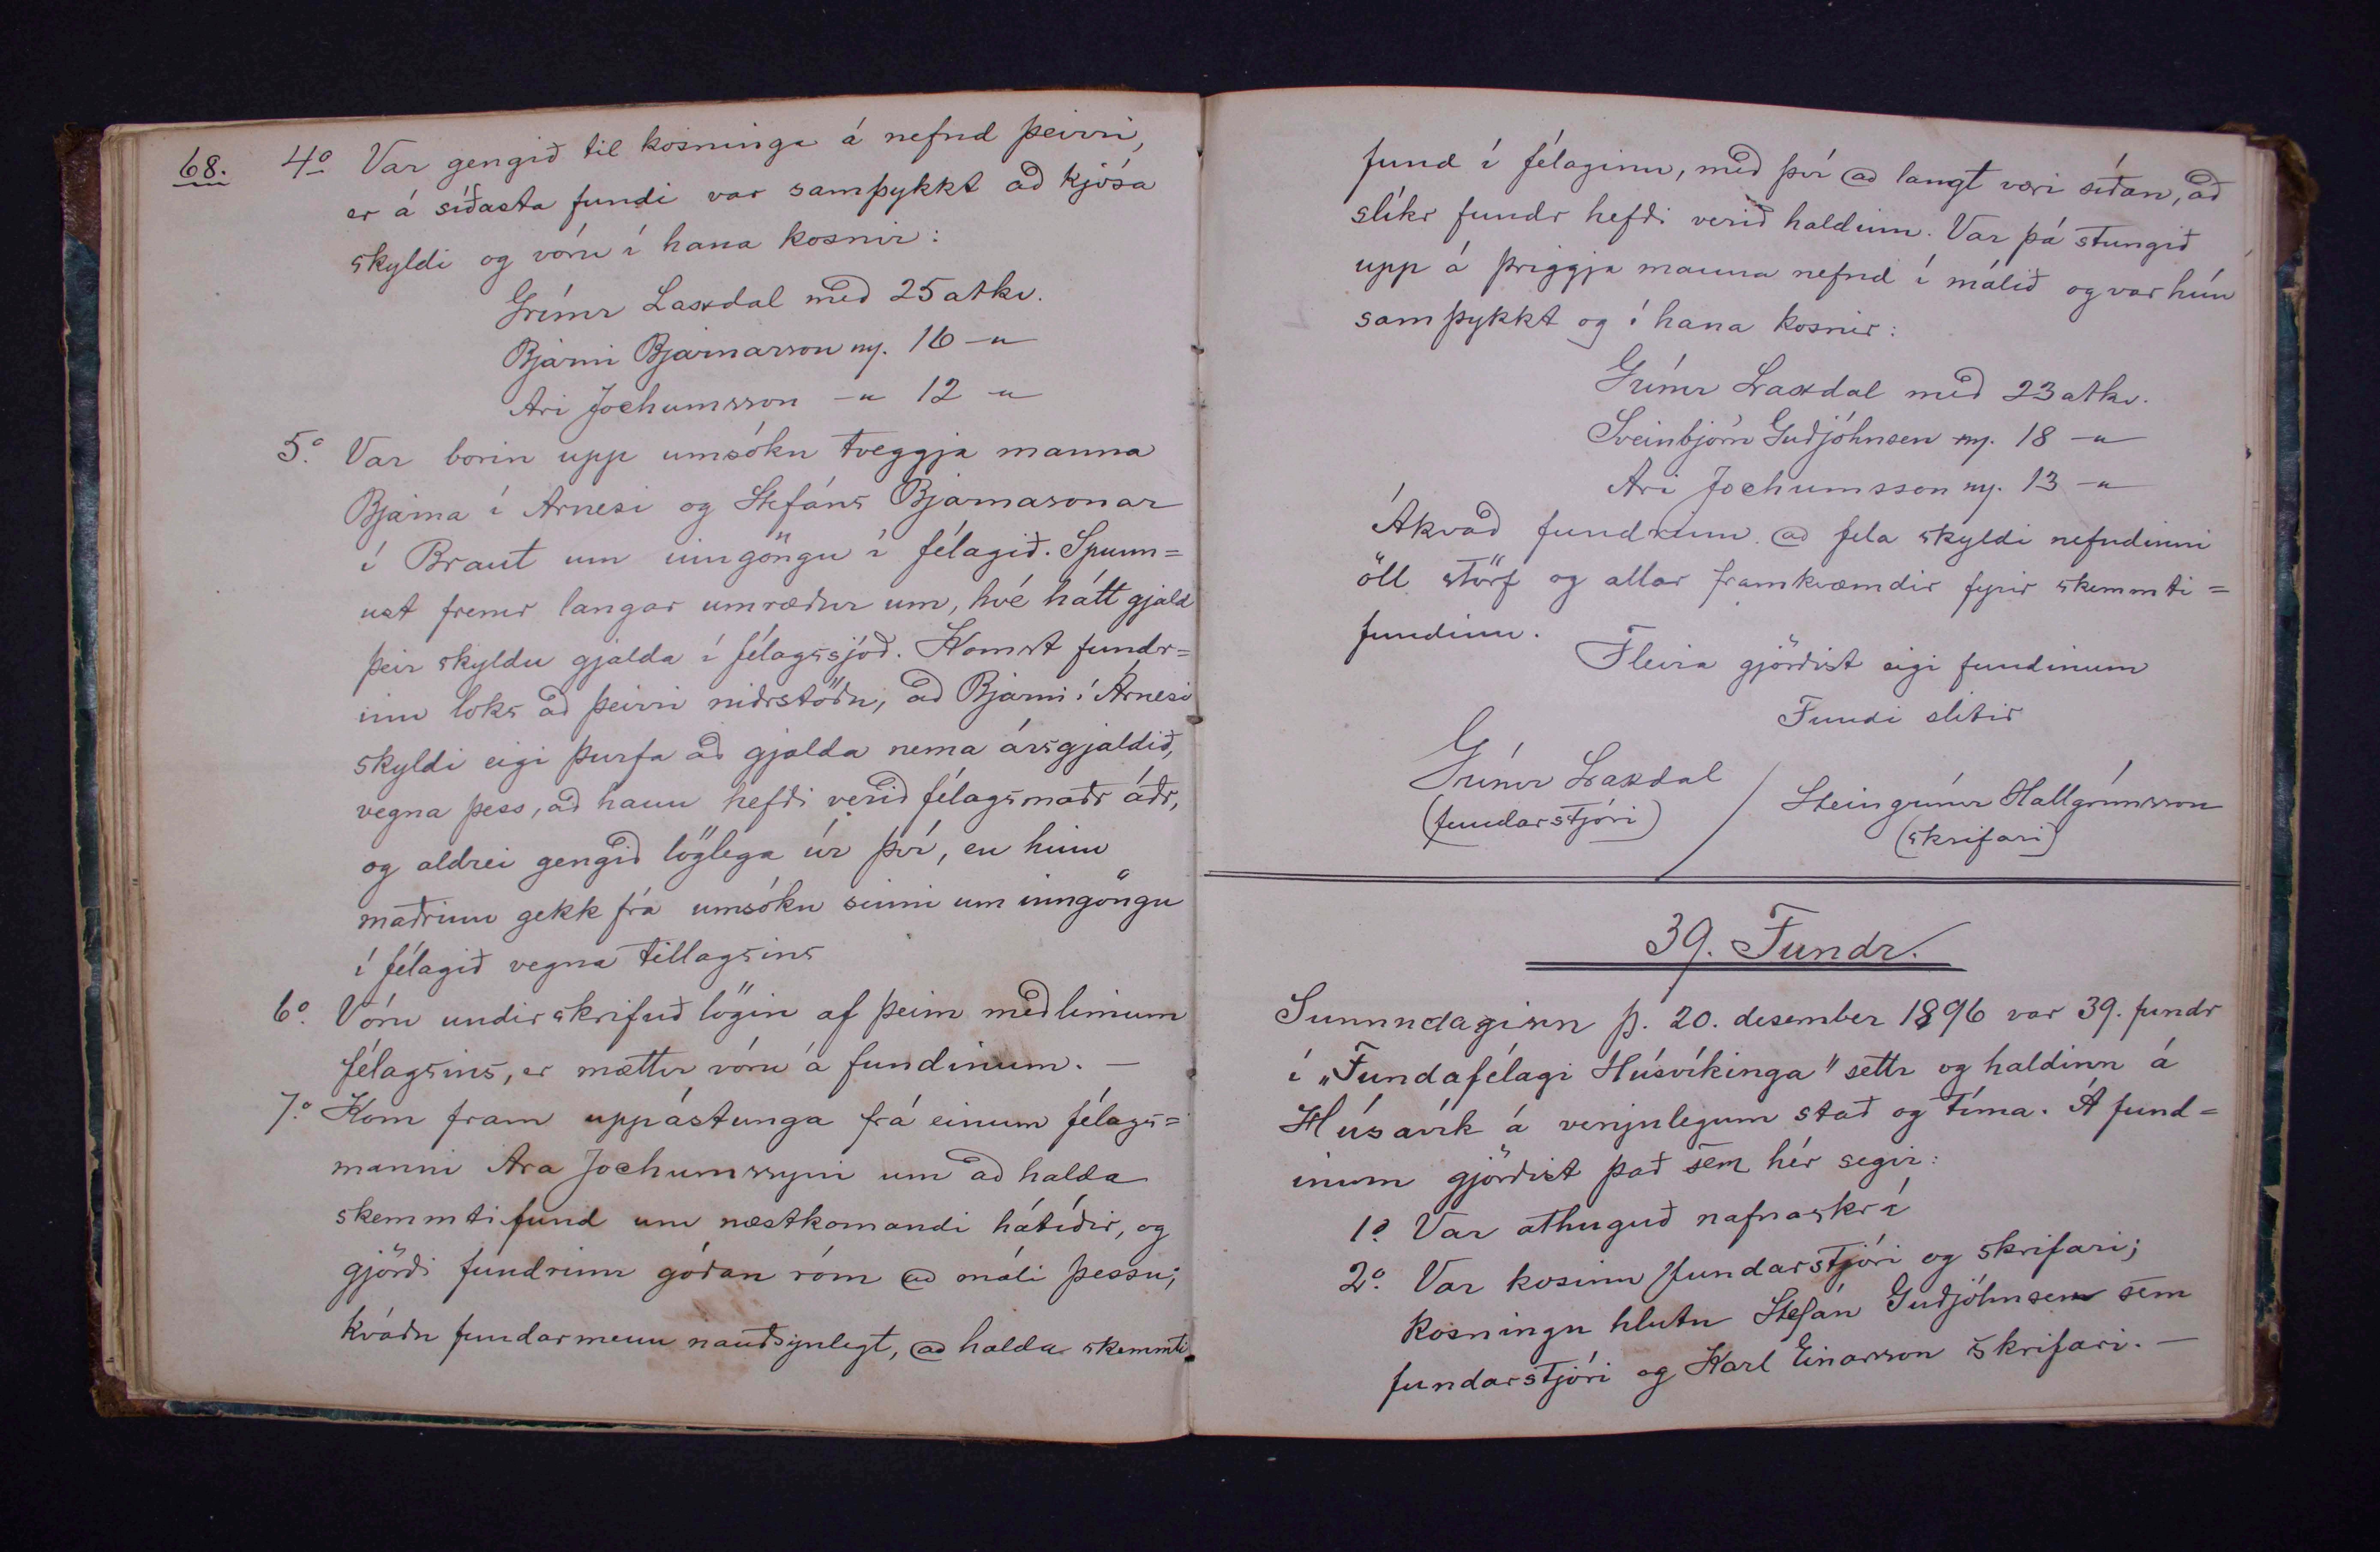 68.
4º Var gengið til kosninga á nefnd þeirri,
er á síðasta fundi var samþykkt að kjósa
skyldi og vóru í hana kosnir:
Grímr Laxdal með 25 atkv.
Bjarni Bjarnarson m. 16 -"
Ari Jochumsson -" 12 -"
5º. Var borin upp umsókn tveggja manna
Bjarna í Árnesi og Stefáns Bjarnasonar
í Braut um inngöngu í félagið. Spunn=
ust fremr langar umræður um, hvé hátt gjald
þeir skyldu gjalda í félagssjóð. Komst fundr=
inn loks að þeirri niðrstöðu, að Bjarni í Árnesi
skyldi eigi þurfa að gjalda nema ársgjaldið,
vegna þess, að hann hefði verið félagsmaðr áðr,
og aldrei gengið löglega úr því, en hinn
maðrinn gekk frá umsókn sinni um inngöngu
í félagið vegna tillagsins
6º. Vóru undirskrifuð lögin af þeim meðlimum
félagsins, er mættir vóru á fundinum. —
7º. Kom fram uppástunga frá einum félags=
manni Ara Jochumssyni um að halda
skemmtifund um næstkomandi hátíðir, og
gjörði fundrinn góðan róm að máli þessu;
kváðu fundarmenn nauðsynlegt, að halda skemmti
fund í félaginu, með því að langt væri síðan, að
slíkr fundr hefði verið haldinn. Var þá stungið
upp á þriggja manna nefnd í málið og var hún
samþykkt og í hana kosnir:
Grímr Laxdal með 23 atkv.
Sveinbjörn Guðjóhnsen m. 18 -"
Ari Jochumsson m. 13 -"
Ákvað fundrinn að fela skyldi nefndinni
öll störf og allar framkvæmdir fyrir skemmti=
fundinn.
Fleira gjörðist eigi fundinum
Fundi slitið
Grímr Laxdal
(fundarstjóri)
Steingrímr Hallgrímsson
(skrifari)
39. Fundr.
Sunnudaginn þ. 20. desember 1896 var 39. fundr
í „Fundafélagi Húsvíkinga" settr og haldinn á
Húsavík á venjulegum stað og tíma. Á fund=
inum gjörðist það sem hér segir:
1º. Var athuguð nafnaskrá
2º. Var kosinn fundarstjóri og skrifari;
kosningu hlutu Stefán Guðjóhnsen sem
fundarstjóri og Karl Einarsson skrifari. —